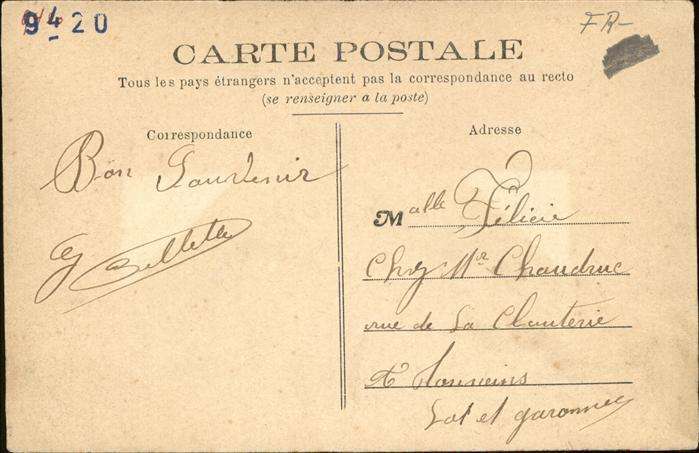 9420
FR-
CARTE POSTALE
Tous les pays étrangers n'acceptent pas la correspondance au recto
(se renseigner a la poste)
Correspondance
Adresse
Bon Souvenir
Malle Félicie
Chez Mr Chaudruc
rue de La
A Tonneins
Lot et garonne